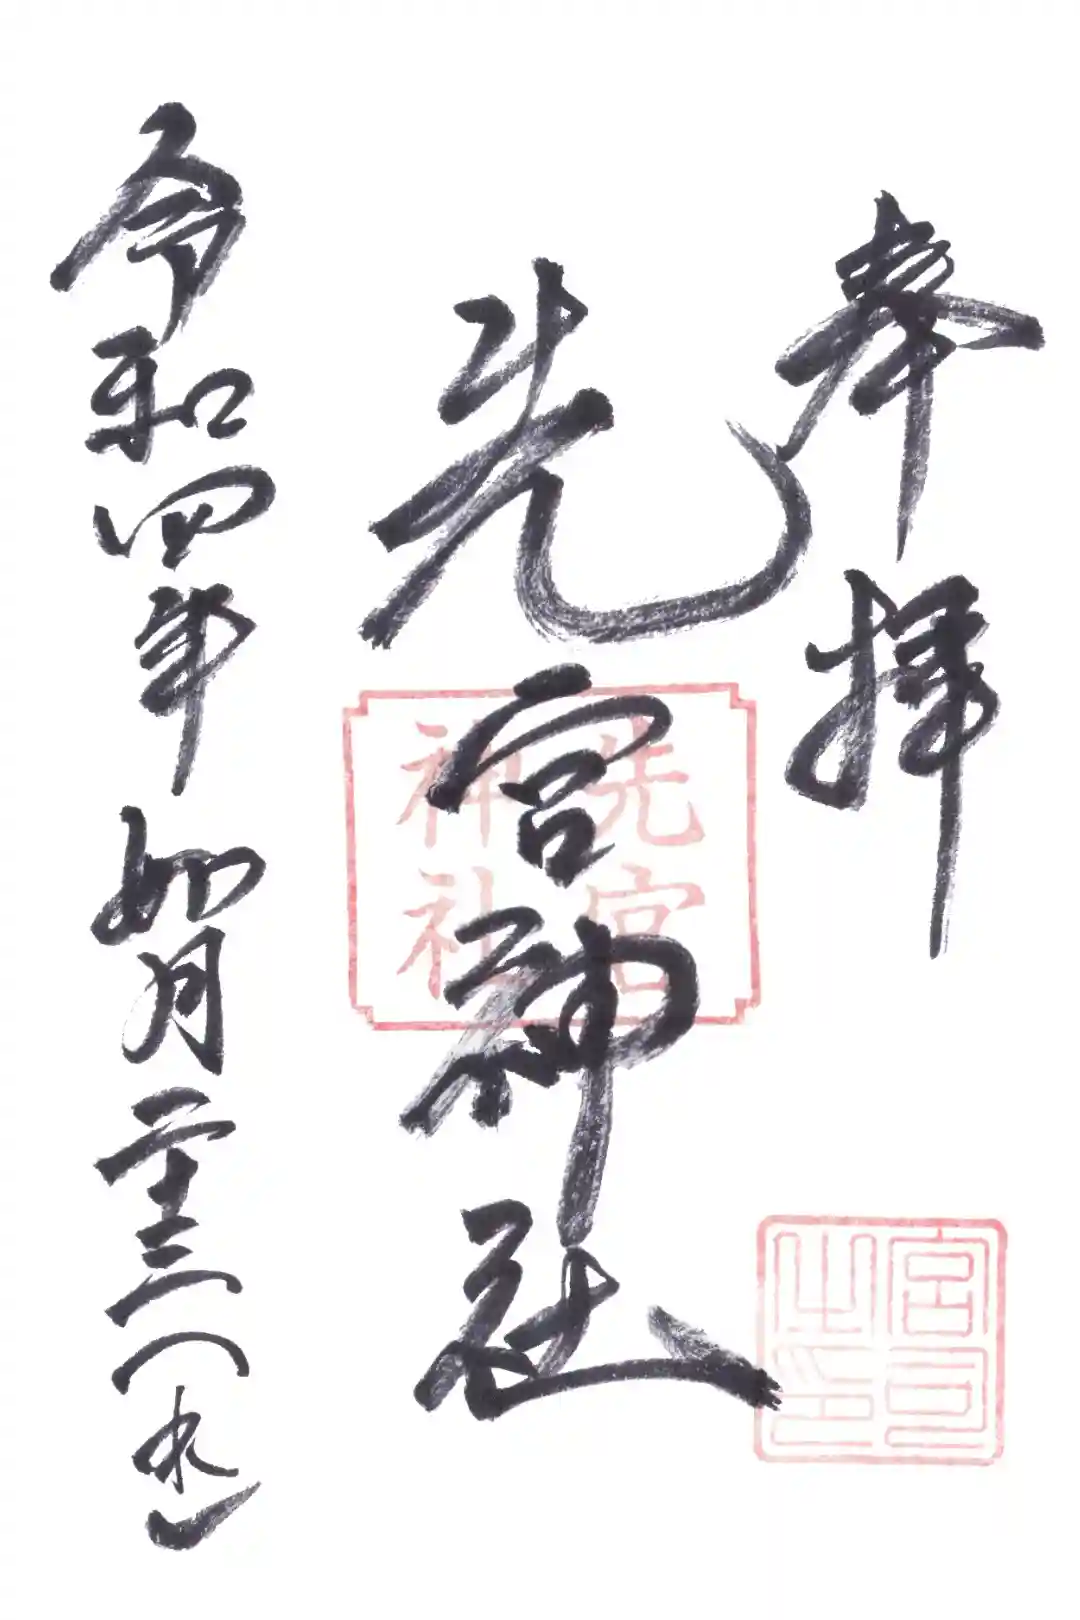 奉拝
先宮神社
先宮
神社
宮司
之印
令和四年如月二十三(水)